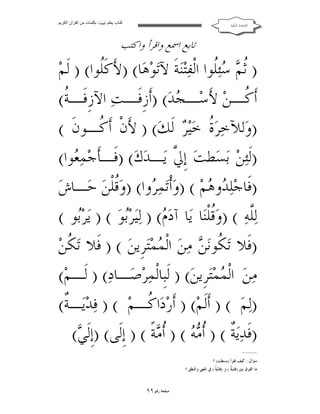 كتاب يعلم تهجيت بكلمات من القرآن الكريم
القاعدة المكية
تابع اسمع واقرأ واكتب
( ثُمَّ سُئِلُوا الْفِتْنَةَ لَآتَوْهَا) (لأَكَلُوا) ( لَمْ
أَكُـــنْ لأَسْـــجُدَ) (أَزِفَـــتِ الآزِفَـــةُ)
(وَلَلآخِرَةُ خَيْرٌ لَكَ) ( لأَنْ أَكُـــونَ )
(لَئِنْ بَسَطتَ إِلَيَّ يَـــدَكَ) (فَـــأَجْمِعُوا)
(فَاجْلِدُوهُمْ ) (وَأْتَمِرُوا) (وَقُلْنَ حَـــاشَ
لِلَّهِ ) (وَقُلْنَا يَا آدَمُ) ( لِيَرْبُوَ) ( يَرْبُو )
(فَلا تَكُونَنَّ مِنَ الْمُمْتَرِينَ ) ( فَلا تَكُنْ
مِنَ الْمُمْتَرِينَ) ( لَبِالْمِرْصَـــادِ) ( لَـــمْ)
(لِمَ ) ( أَلَمْ) ( أَرْدَاكُـــمْ ) ( فِدْيَـــةٌ)
(فَدِيَةٌ ) ( أُمُّهُ ) ( أُمَّةً ) ( إِلَى) (إِلَيَّ)
سؤال : كيف تقرأ (بسطت) ؟
صفحة رقم ٩٩